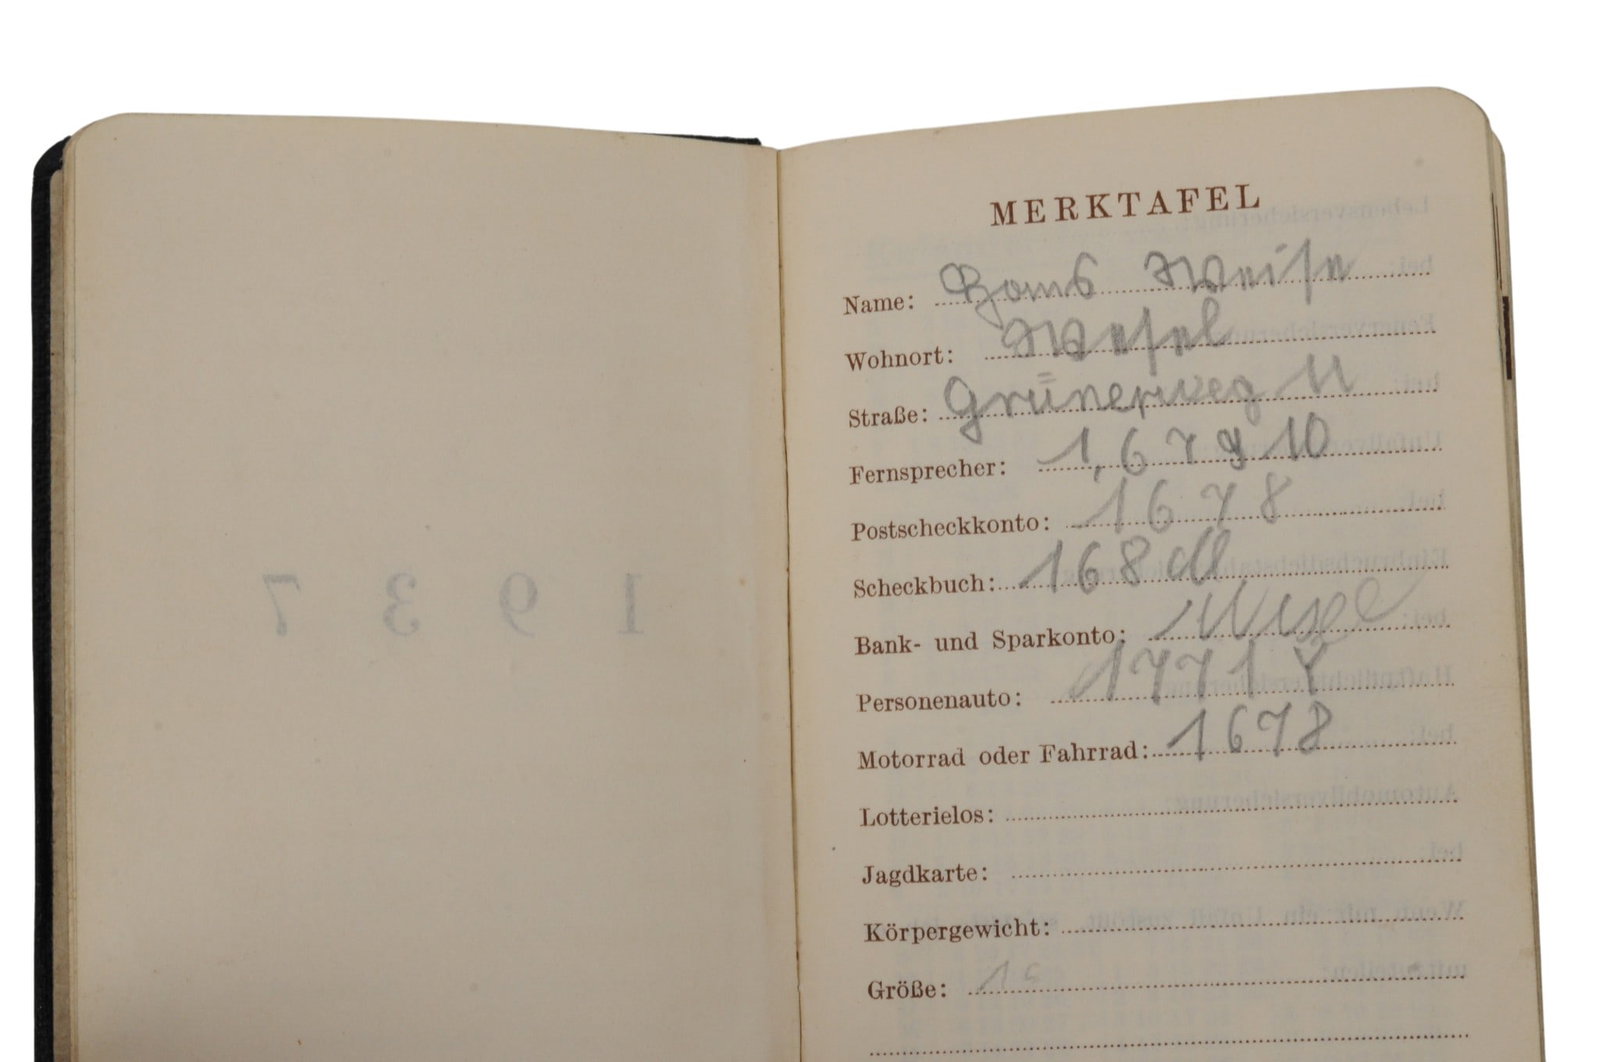 1 9 3 7
MERKTAFEL
Name: Hans Weise
Wohnort: Wesel
Straße: Grünerweg 11
Fernsprecher: 1,67910
Postscheckkonto: 1678
Scheckbuch: 168
Bank- und Sparkonto:
Personenauto: 1771 Y
Motorrad oder Fahrrad: 1678
Lotterielos:
Jagdkarte:
Körpergewicht:
Größe: 1